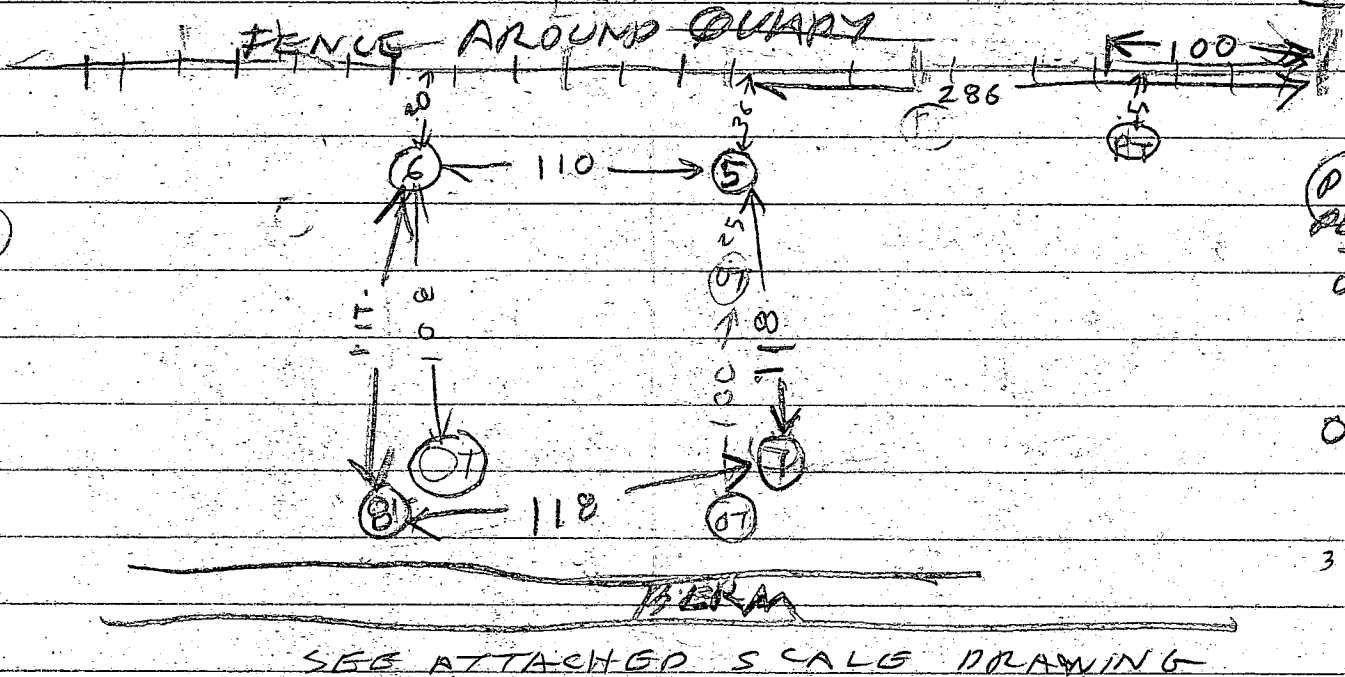 FENCE AROUND QUARY
100
286
20
36
15
PT
6
110
5
25
OT
117.
108
100
118
OT
7
8
118
OT
BERM
3
SEE ATTACHED SCALE DRAWING